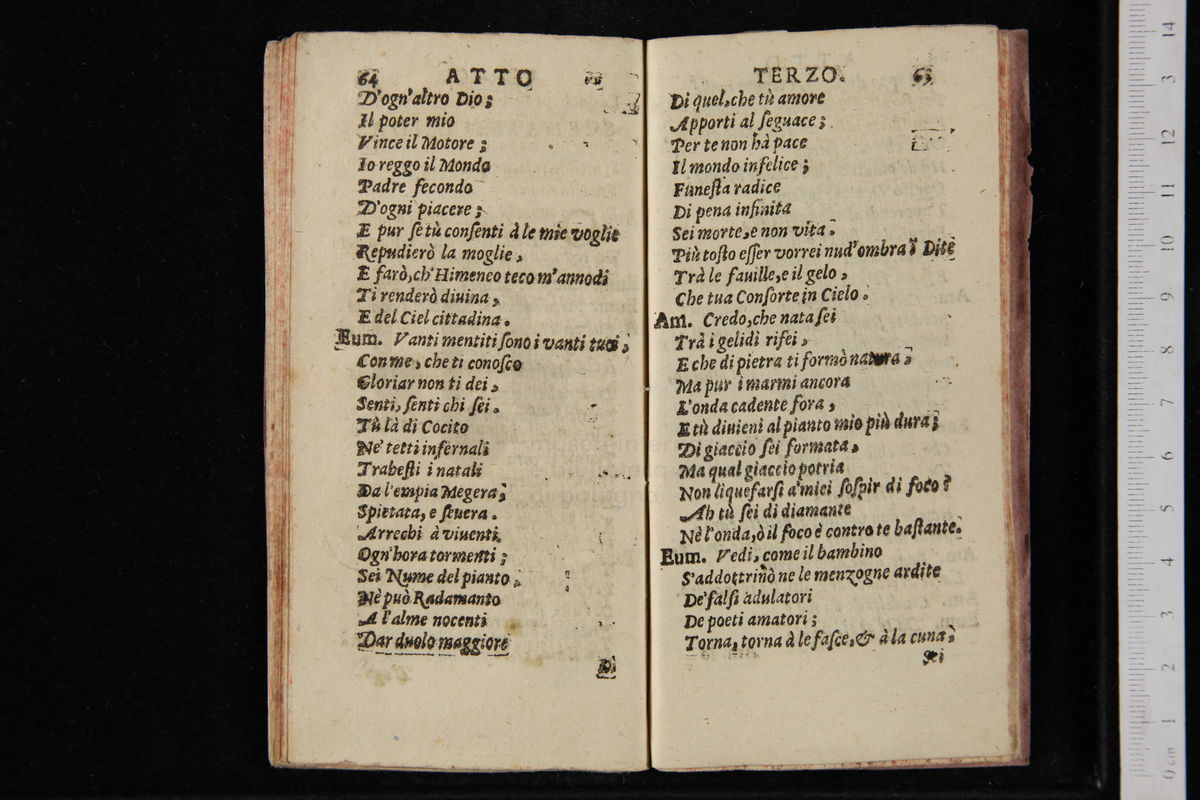 64 ATTO
D'ogn'altro Dio;
Il poter mio
Vince il Motore;
Io reggo il Mondo
Padre fecondo
D'ogni piacere;
E pur se tù consenti à le mie voglie
Repudierò la moglie,
E farò, ch'Himeneo teco m'annodi
Ti renderò diuina,
E del Ciel cittadina.
Eum. Vanti mentiti sono i vanti tuoi,
Con me, che ti conosco
Gloriar non ti dei,
Senti, senti chi sei.
Tù là di Cocito
Ne' tetti infernali
Trahesti i natali
Da l'empia Megera;
Spietata, e seuera.
Arrechi à viuenti
Ogn'hora tormenti;
Sei Nume del pianto,
Nè può Radamanto
A l'alme nocenti
Dar duolo maggiore
Di
TERZO. 63
Di quel, che tù amore
Apporti al seguace;
Per te non hà pace
Il mondo infelice;
Funesta radice
Di pena infinita
Sei morte, e non vita.
Più tosto esser vorrei nud'ombra à Dite
Trà le fauille, e il gelo,
Che tua Consorte in Cielo.
Am. Credo, che nata sei
Trà i gelidi rifei,
E che di pietra ti formò natura,
Ma pur i marmi ancora
L'onda cadente fora,
E tù diuieni al pianto mio più dura;
Di giaccio sei formata,
Ma qual giaccio potria
Non liquefarsi a'miei sospir di foco?
Ah tù sei di diamante
Nè l'onda, ò il foco è contro te bastante.
Eum. Vedi, come il bambino
S'addottrinò ne le menzogne ardite
De'falsi adulatori
De poeti amatori;
Torna, torna à le fasce, & à la cuna,
Sei